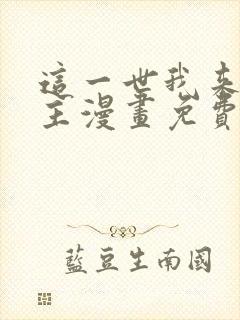 這一世我來
主漫畫免費
藍豆生南國